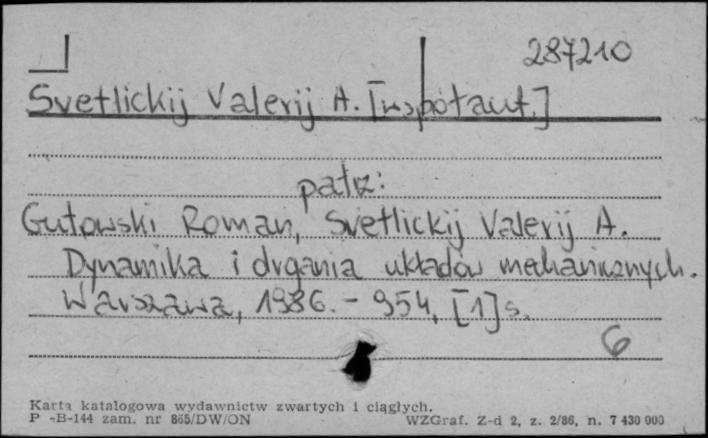 287210
Svetlickij Valerij A. [współaut.]
patrz:
Gutowski Roman, Svetlickij Valerij A.
Dynamika i drgania układów mechanicznych.
Warszawa, 1986. - 954, [1] s.
6
Karta katalogowa wydawnictw zwartych i ciągłych.
P -B-144 zam. nr 865/DW/ON
WZGraf. Z-d 2, z. 2/86, n. 7 430 000